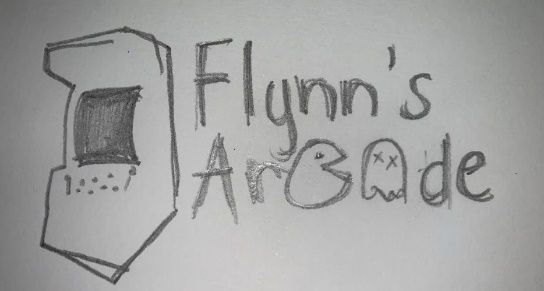 Flynn's
Arcade